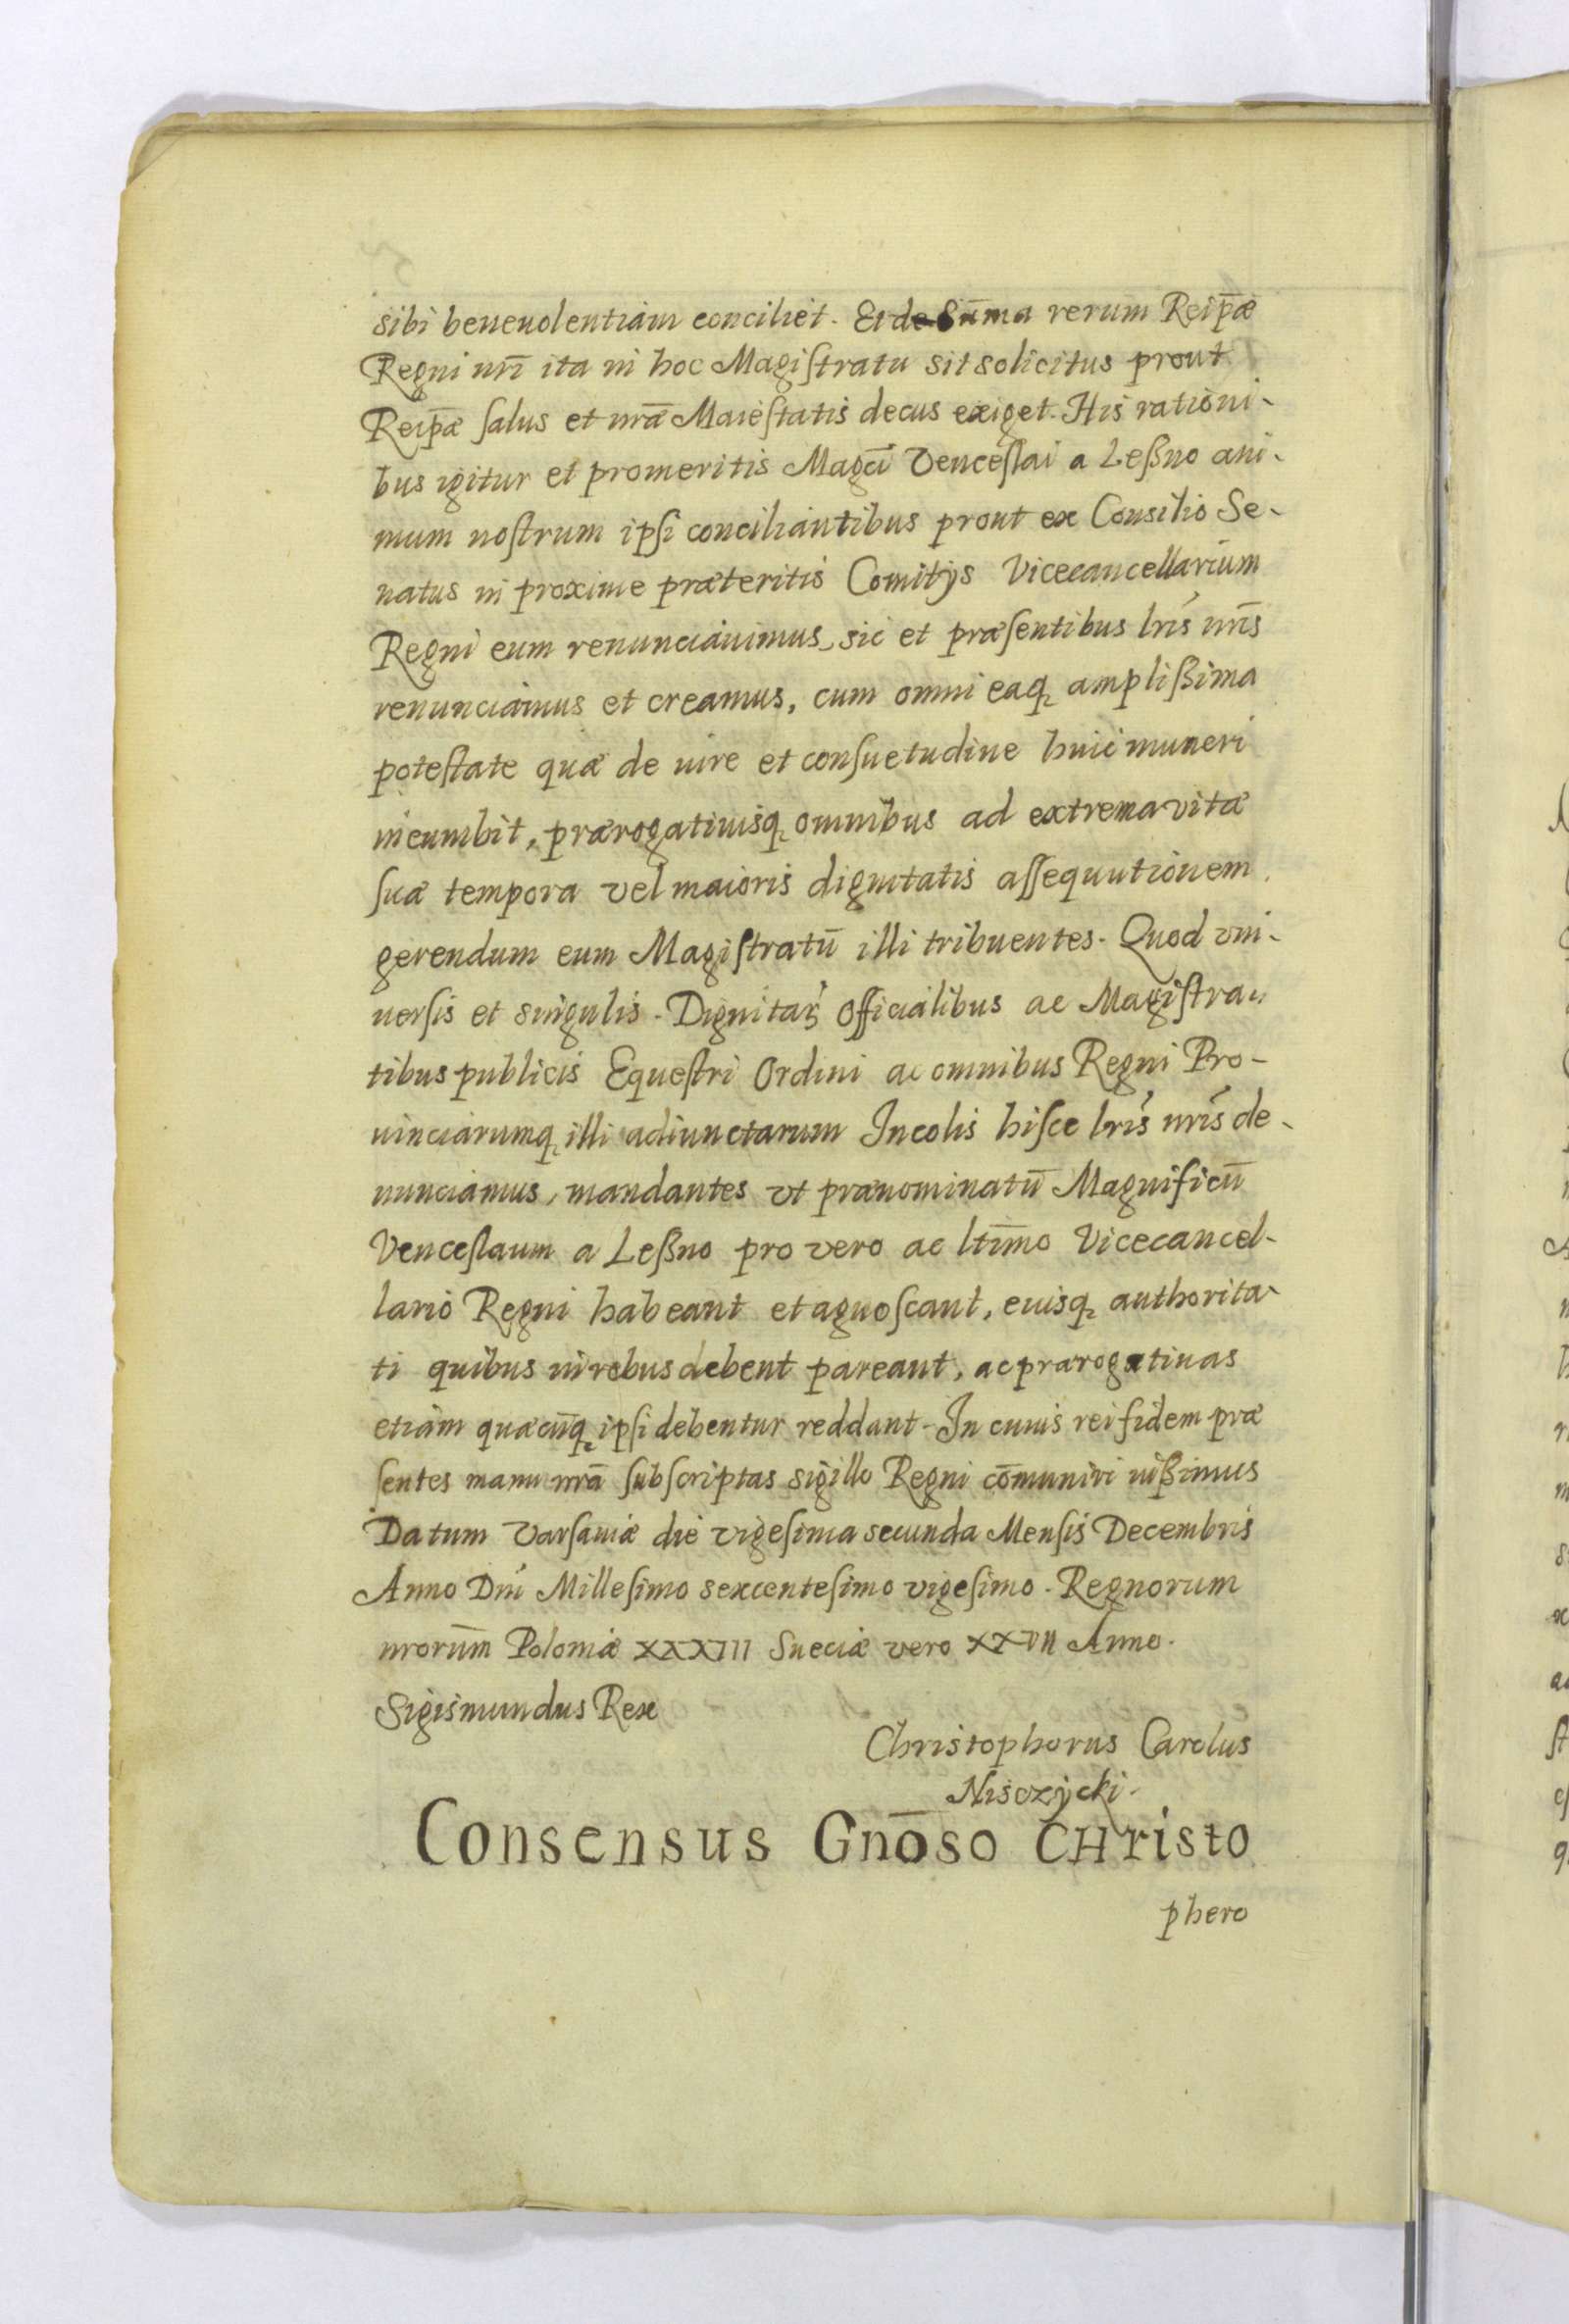 sibi beneuolentiam conciliet. Et de Sum̄a rerum Reip̄æ
Regni nrī ita in hoc Magiſtratu sit solicitus prout
Reip̄æ ſalus et nrā Maieſtatis decus exiget. His rationi-
bus igitur et promeritis Magci̅ Venceſlai a Leßno ani-
mum noſtrum ipſi conciliantibus prout ex Consilio Se-
natus in proxime præteritis Comitijs Vicecancellarium
Regni eum renunciauimus, sic et præſentibus lrīs nrīs
renunciamus et creamus, cum omni eaq̨ ampliſsima
poteſtate quæ de iure et conſuetudine huic muneri
incumbit, prærogatiuisq̨ omnibus ad extrema vitæ
ſuæ tempora vel maioris dignitatis aſſequutionem
gerendum eum Magiſtratū illi tribuentes. Quod vni-
uerſis et singulis. Dignitar̄ Officialibus ac Magiſtra-
tibus publicis Equeſtri Ordini ac omnibus Regni Pro-
uinciarumq̨ illi adiunctarum Incolis hiſce lrīs nrīs de-
nunciamus, mandantes vt prænominatū Magnificū
Venceſlaum a Leßno pro vero ac ltīmo Vicecancel-
lario Regni habeant et agnoſcant, euisq̨ authorita-
ti quibus in rebus debent pareant, ac prærogatiuas
etiam quæcūq̨ ipſi debentur reddant. In cuius rei fidem præ
ſentes manu nrā ſubſcriptas sigillo Regni com̄uniri iuſsimus
Datum Varſauiæ die vigeſima secunda Menſis Decembris
Anno Dnī Milleſimo sexcentesimo vigesimo. Regnorum
nrorūm Poloniæ XXXIII Sueciæ vero XXVII Anno.
Sigismundus Rex
Christophorus Carolus
Nisczycki.
Consensus Gnōso CHristo
phero